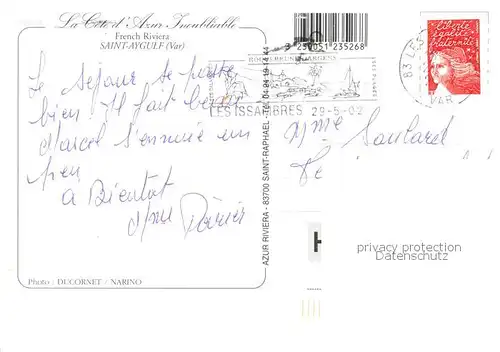 La Côte d'Azur Inoubliable
French Riviera
SAINT-AYGULF (Var)
Le séjour se passe
bien Il fait beau
Marcel s'ennuie un
peu
à Bientôt
Photo / DUCORNET / NARINO
AZUR RIVIERA - 83700 SAINT-RAPHAEL - Tél. 04 94 19
3 250051 235268
ROQUEBRUNE/ARGENS
LES ISSAMBRES 29-5-02
83 LES
VAR
Liberté
égalité
fraternité
Mme Soulard
privacy protection
Datenschutz